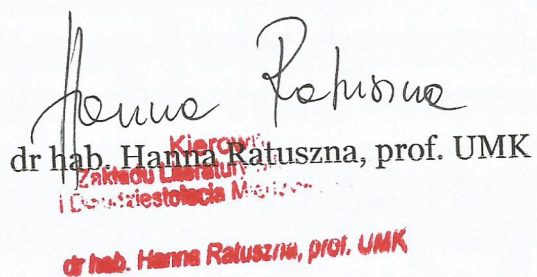 Hanna Ratuszna
dr hab. Hanna Ratuszna, prof. UMK
Kierow
Zakładu Literatury
i Dwudziestolecia
dr hab. Hanna Ratuszna, prof. UMK